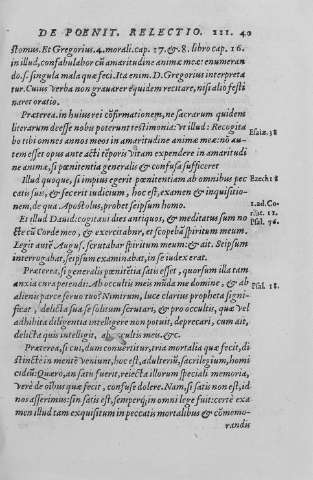 DE POENIT. RELECTIO. III. 40
stomus. Et Gregorius. 4. morali. cap. 17. & 8. libro cap. 16.
in illud, confabulabor cũ amaritudine animæ meæ: enumeran
do. s. singula mala quæ feci. Ita enim. D. Gregorius interpreta
tur. Cuius verba non grauarer équidem recitare, nisi alio festi
naret oratio.
Præterea. in huius rei cõfirmationem, ne sacrarum quidem
literarum deesse nobis poterunt testimonia: vt illud: Recogita
bo tibi omnes annos meos in amaritudine animæ meæ: nõ au-
Esaiæ. 38
tem esset opus ante acti tẽporis vitam expendere in amaritudi
ne animæ, si pœnitentia generalis & confusa sufficeret
Illud quoque, si impius egerit pœnitentiam ab omnibus pec
Ezech: 8
catis suis, & fecerit iudicium, hoc est, examen & inquisitio-
nem, de qua. Apostolus, probet seipsum homo.
1. ad. Co-
rint. 11.
Et illud Dauid: cogitaui dies antiquos, & meditatus sum no
Psal. 76.
cte cũ Corde meo, & exercitabar, & scopebã spiritum meum.
Legit autẽ Augus. scrutabar spiritum meum: & ait. Seipsum
interrogabat, seipsum examinabat, in se iudex erat.
Præterea, si generalis pœnitẽtia satis esset, quorsum illa tam
anxia cura perpendi. Ab occultis meis mũda me domine, & ab
alienis parce seruo tuo? Nimirum, luce clarius propheta signi-
Psal. 18.
ficat, delicta sua se solitum scrutari, & pro occultis, quæ vel
adhibita diligentia intellegere non potuit, deprecari, cum ait,
delicta quis intelligit, ab occultis meis. &c.
Præterea, si cui, dum conuertitur, tria mortalia quæ fecit, di
stinctè in mentẽ veniunt, hoc est, adulteriũ, sacrilegium, homi
cidiũ: Quæro, an satis fuerit, reiecta illorum speciali memoria,
verè de oĩbus quæ fecit, confuse dolere. Nam, si satis non est, id
nos asserimus: sin satis est, semperq; in omni lege fuit: certè exa
men illud tam exquisitum in peccatis mortalibus & cõmemo-
randis